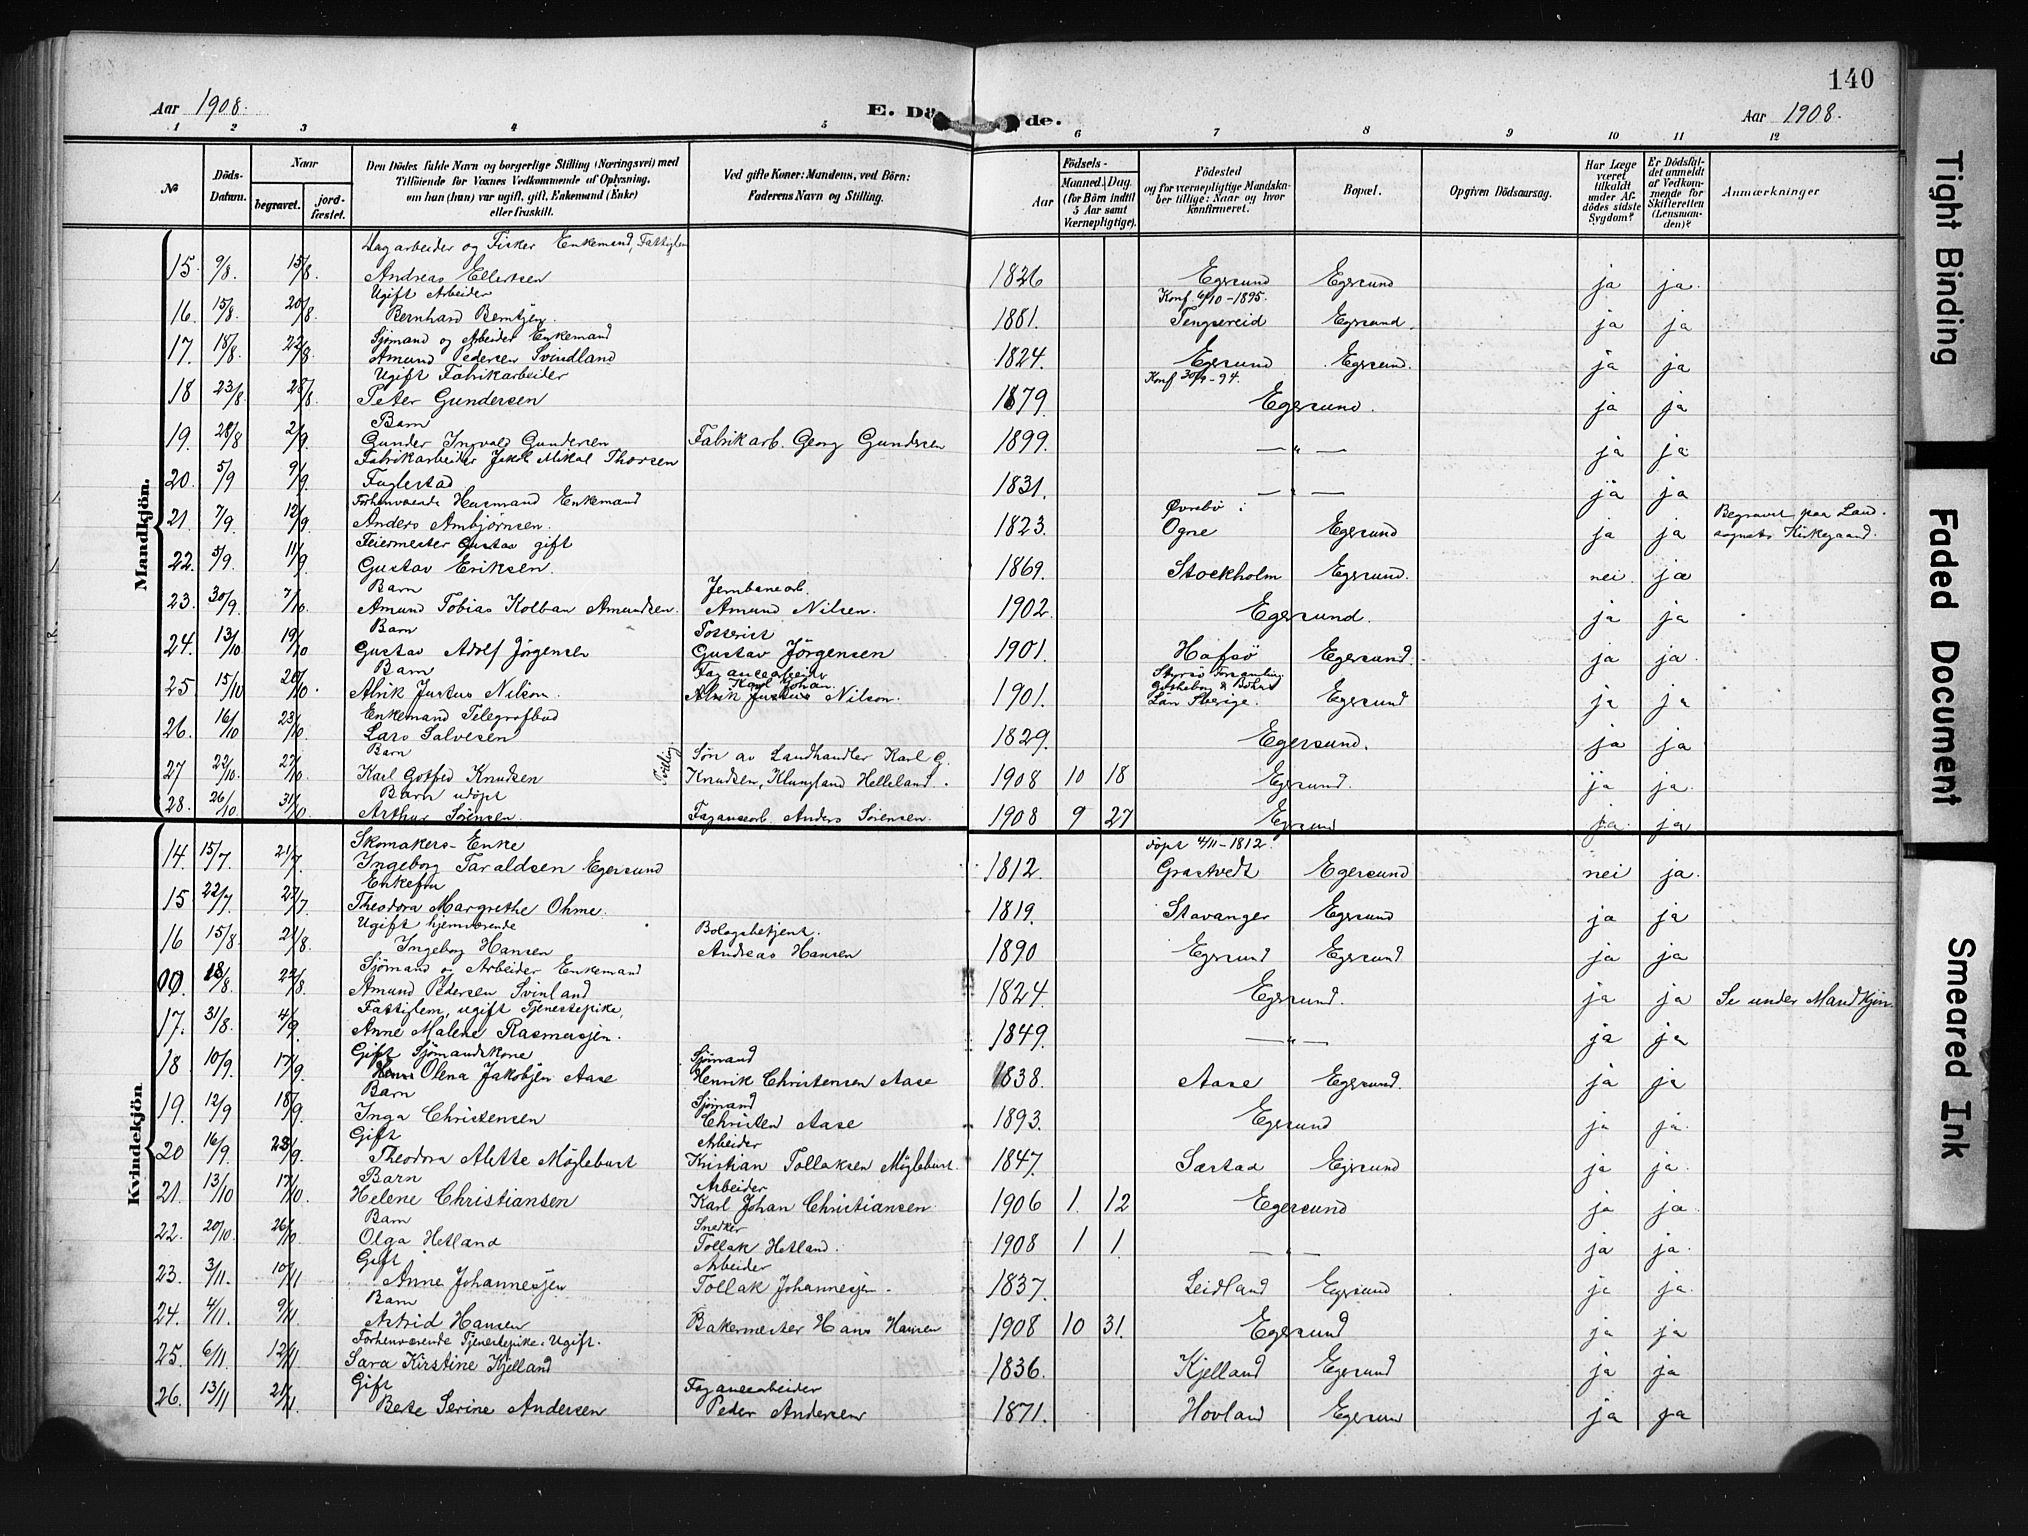 140
Aar 1908.
E. Dö de.
Aar 1908.
1 2 3 4 5 6 7 8 9 10 11 12
No
Döds-Datum.
Naar
begravet.
jord-fæstet.
Den Dödes fulde Navn og borgerlige Stilling (Næringsvei) med
Tilföiende for Voxnes Vedkommende af Oplysning,
om han (hun) var ugift, gift, Enkemand (Enke)
eller fraskilt.
Ved gifte Koner: Mandens, ved Börn:
Faderens Navn og Stilling.
Födsels-
Aar
Maaned. Dag.
(for Börn indtil
5 Aar samt
Værnepligtige).
Födested
og for værnepligtige Mandska-
ber tillige: Naar og hvor
Konfirmeret.
Bopæl.
Opgiven Dödsaarsag.
Har Læge
været
tilkaldt
under Af-
dödes sidste
Sygdom?
Er Dödsfal-
det anmeldt
af Vedkom-
mende for
Skifteretten
(Lensman-
den)?
Anmærkninger
Mandkjön.
Dagarbeider og Fisker Enkemand, Fattiglem
15. 9/8. 15/8. Andreas Ellertsen 1826 Egersund Egersund ja ja.
Ugift Arbeider Konf. 6/10-1895.
16. 15/8. 20/8. Bernhard Berntsen. 1881. Tengsereid Egersund. ja ja
Sjømand og Arbeider Enkemand
17. 18/8. 22/8. Amund Pedersen Svindland 1824. Egersund Egersund. ja ja
Ugift Fabrikarbeider Konf 30/9-94.
18 23/8 28/8. Peter Gundersen 1879. Egersund. ja ja
Barn
19. 28/8 2/9. Gunder Ingvald Gundersen Fabrikarb. Georg Gundersen 1899. — " — ja ja.
Fabrikarbeider Jakob Mikal Thorsen
20. 5/9 9/9. Fuglestad 1831. — " — ja ja
Forhenværende Husmand Enkemand Øvrebø i Begravet paa Land-
21. 7/9. 12/9. Anders Ambjørnsen. 1823. Ogne Egersund ja ja sognets Kirkegaard.
Feiermester Gustav gift
22. 5/9. 11/9. Gustav Eriksen. 1869. Stockholm Egersund. nei. ja
Barn Jernbanearb.
23. 30/9. 7/10 Amund Tobias Kolban Amundsen. Amund Nilsen. 1902. Egersund. ja ja
Barn
24. 13/10 19/10 Gustav Adolf Jørgensen Gustav Jørgensen 1901. Hafsø Egersund. ja ja.
Barn Fajancearbeider
Karl Johan
25 15/10 20/10. Alrik Justus Nilson. Alrik Justus Nilson. 1901. Län Sverige. Egersund ja ja
Enkemand Telegrafbud
26. 16/10 23/10 Lars Salvesen 1829. Egersund. ja ja
Barn Tvilling Søn av Landhandler Karl G.
27 22/10. 27/10 Karl Gotfred Knudsen Knudsen, Klungland Helleland. 1908 10 18 Egersund. ja ja.
Barn udøpt
28. 26/10. 31/10 Arthur Sørensen. Fajancearb. Anders Sørensen. 1908 9 27 Egersund ja. ja
Kvindekjön.
Skomakers-Enke döpt 4/11-1812.
14. 15/7. 21/7. Ingeborg Taraldsen Egersund 1812. Grastvedt Egersund nei ja.
Enkefru
15 22/7. 27/7 Theodora Margrethe Ohme. 1819. Stavanger Egersund ja ja
Ugift hjemværende
16 15/8. 21/8. Ingeborg Hansen Andreas Hansen 1890 Egersund Egersund ja ja
Sjømand og Arbeider Enkemand
00. 18/8 22/8. Amund Pedersen Svinland 1824. Egersund. ja ja Se under Mandkjøn.
Fattiglem, ugift Tjenestepike,
17. 31/8. 4/9. Anne Malene Rasmussen. 1849. — " — ja ja
Gift Sjømandskone Sjømand
18 10/9. 17/9. Olena Jakobsen Aase Henrik Christensen Aase 1838. Aase Egersund. ja ja
Barn Sjømand
19. 12/9 18/9. Inga Christensen Christen Aase 1893. Egersund ja ja.
Gift Arbeider
20 16/9. 23/9. Theodora Alette Møgleburt Kristian Tollaksen Møgleburt. 1847. Sæstad Egersund ja ja.
Barn Arbeider
21. 13/10 17/10. Helene Christiansen Karl Johan Christiansen 1906 1. 12 Egersund ja ja.
Barn Snekker
22. 20/10. 26/10 Olga Hetland Tollak Hetland. 1908 1 1. — " — ja ja.
Gift Arbeider
23. 3/11. 10/11 Anne Johannessen Tollak Johannessen. 1837. Leidland Egersund ja ja
Barn
24. 4/11. 9/11. Astrid Hansen Bakermester Hans Hansen 1908 10 31. Egersund ja ja
Forhenværende Tjenestepike. Ugift.
25. 6/11. 12/11. Sara Kirstine Kjelland 1836. Kjelland Egersund ja ja
Gift Fajancearbeider
26. 13/11 21/11. Berte Serine Andersen Peder Andersen 1871. Hovland Egersund ja ja
Tight Binding
Faded Document
Smeared Ink